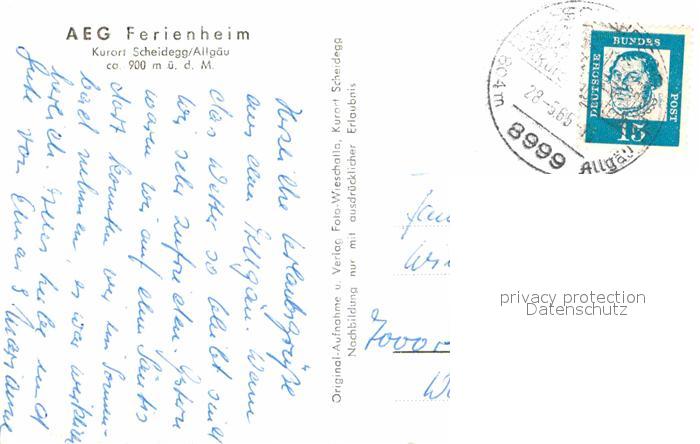 AEG Ferienheim
Kurort Scheidegg/Allgäu
ca. 900 m ü. d. M.
Herzliche Urlaubsgrüße
aus dem Allgäu. Wenn
das Wetter so bleibt sind
wir sehr zufrieden. Gestern
waren wir auf dem Säntis
dort konnten wir ein Sonnen-
bad nehmen, es war wirklich
herrlich. Alles liebe und
Gute von Elmar & Marianne
Original-Aufnahme u. Verlag Foto-Wieschalla, Kurort Scheidegg
Nachbildung nur mit ausdrücklicher Erlaubnis
804 m
28.-5.65
8999
Allgäu
DEUTSCHE
BUNDES
POST
15
Fam
7000
privacy protection
Datenschutz